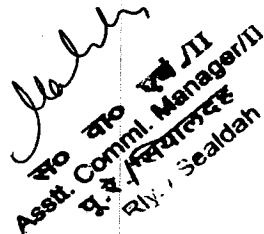 स० वा० प्रबं /II
Asstt. Comml. Manager/II
पू. रे. /सियालदह
Rly. / Sealdah